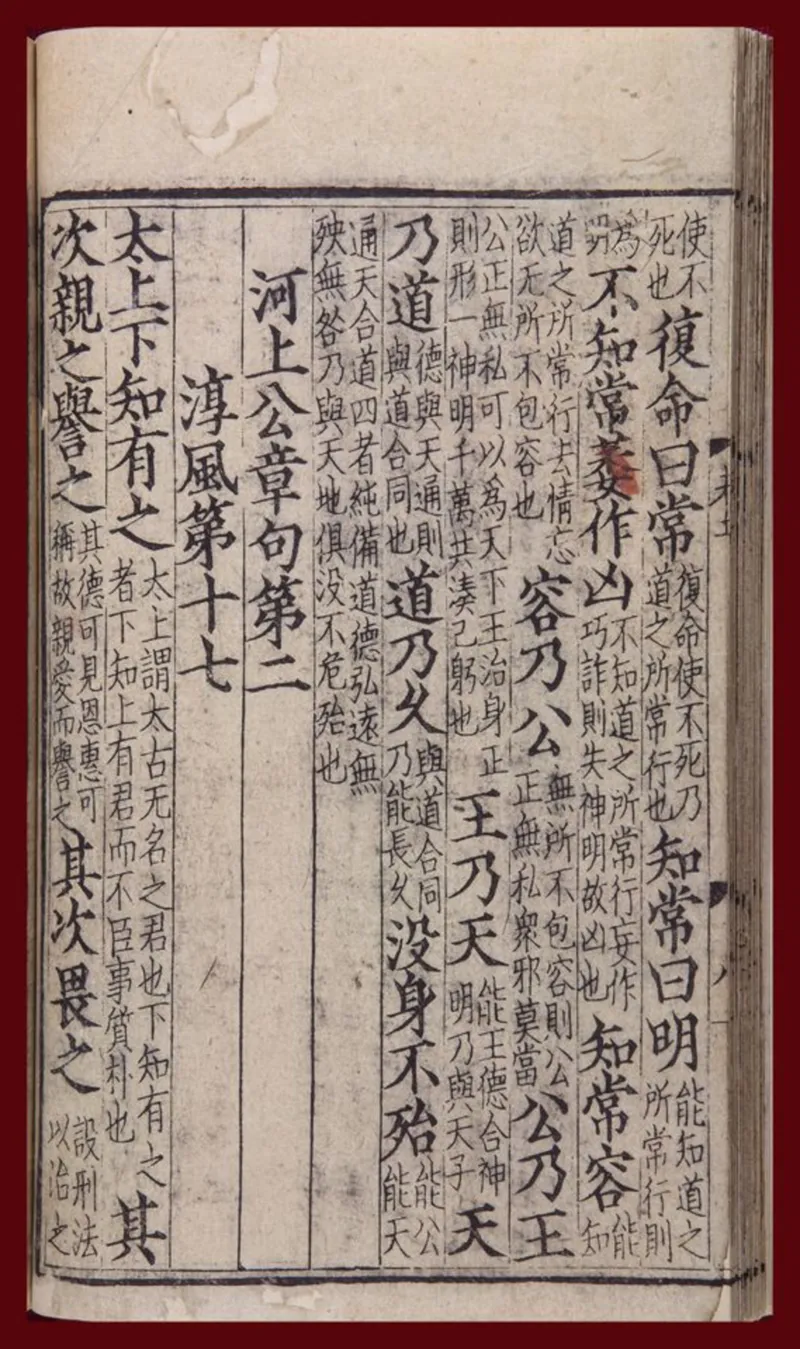 使不死也復命曰常復命使不死乃道之所常行也知常曰明能知道之所常行則
為明不知常萎作凶不知道之所常行妄作巧詐則失神明故凶也知常容能知
道之所常行去情忘欲无所不包容也容乃公無所不包容則公正無私衆邪莫當公乃王
公正無私可以為天下王治身正則形一神明千萬共湊己躬也王乃天能王德合神明乃與天子天
乃道德與天通則與道合同也道乃久與道合同乃能長久没身不殆能公能天
通天合道四者純備道德弘遠無殃無咎乃與天地俱没不危殆也
河上公章句第二
淳風第十七
太上下知有之太上謂太古无名之君也下知有之者下知上有君而不臣事質朴也其
次親之譽之其德可見恩惠可稱故親愛而譽之其次畏之設刑法以治之